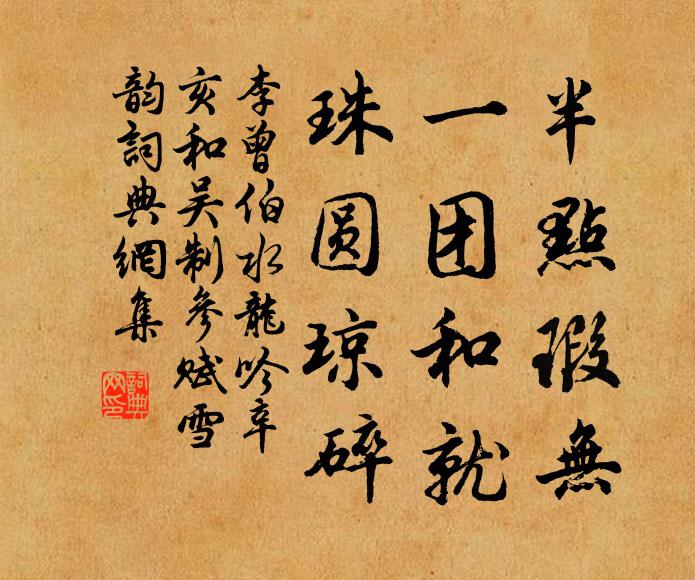 半點瑕無
一团和就
珠圆琼碎
李曾伯水龍吟辛
亥和吴制參赋雪
韵詞典網集
詞典
网印